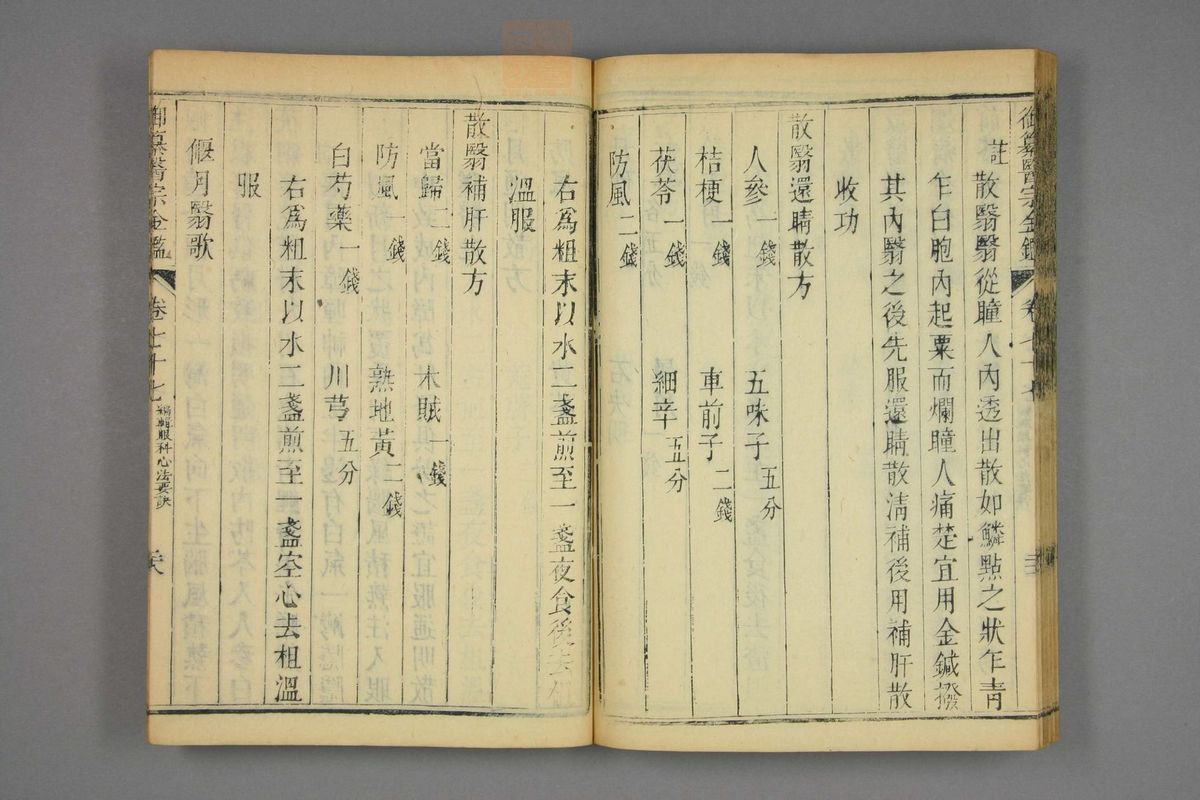 御纂醫宗金鑑 卷七十七
註 散翳翳從瞳人內透出散如鱗點之狀乍靑
乍白胞內起粟而爛瞳人痛楚宜用金鍼撥
其內翳之後先服還睛散淸補後用補肝散
收功
散翳還睛散方
人參一錢 五味子五分
桔梗一錢 車前子二錢
茯苓一錢 細辛五分
防風二錢
右爲粗末以水二盞煎至一盞夜食後去柤
溫服
散翳補肝散方
當歸二錢 木賊一錢
防風一錢 熟地黃二錢
白芍藥一錢 川芎五分
右爲粗末以水二盞煎至一盞空心去柤溫
服
偃月翳歌
御纂醫宗金鑑 卷七十七 編輯眼科心法要訣